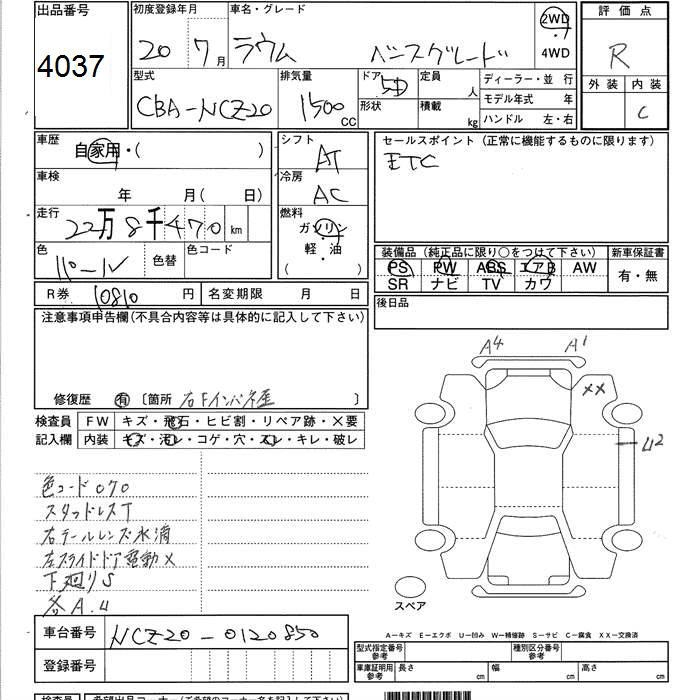 出品番号
4037
初度登録年月
20 7月
車名・グレード
ラウム ベースグレード
2WD
・
4WD
評価点
R
外装 内装
C
型式
CBA-NCZ20
排気量
1500cc
ドア 5D
形状
定員 人
積載 kg
ディーラー・並 行
モデル年式 年
ハンドル 左・右
車歴
自家用・( )
車検
年 月( 日)
走行
22万8千470 km
色
パール
色替
色コード
シフト
AT
冷房
AC
燃料
ガソリン
・
軽・油
( )
セールスポイント（正常に機能するものに限ります）
ETC
装備品（純正品に限り○をつけて下さい）
PS PW ABS エアB AW
SR ナビ TV カワ
新車保証書
有・無
後日品
R券 10810円 名変期限 月 日
注意事項申告欄(不具合内容等は具体的に記入して下さい)
修復歴 有 〔箇所 右Fインパネ歪 〕
検査員
記入欄
FW キズ・飛石・ヒビ割・リペア跡・×要
内装 キズ・汚レ・コゲ・穴・スレ・キレ・破レ
A4 A1
XX
U2
色コード070
スタッドレスT
右テールレンズ水滴
左スライドドア電動×
下廻りS
各A.U
スペア
A－キズ E－エクボ U－凹み W－補修跡 S－サビ C－腐食 XX－交換済
車台番号
NCZ20-0120850
登録番号
型式指定番号
参考
種別区分番号
参考
車庫証明用
参考
長さ cm 幅 cm 高さ cm